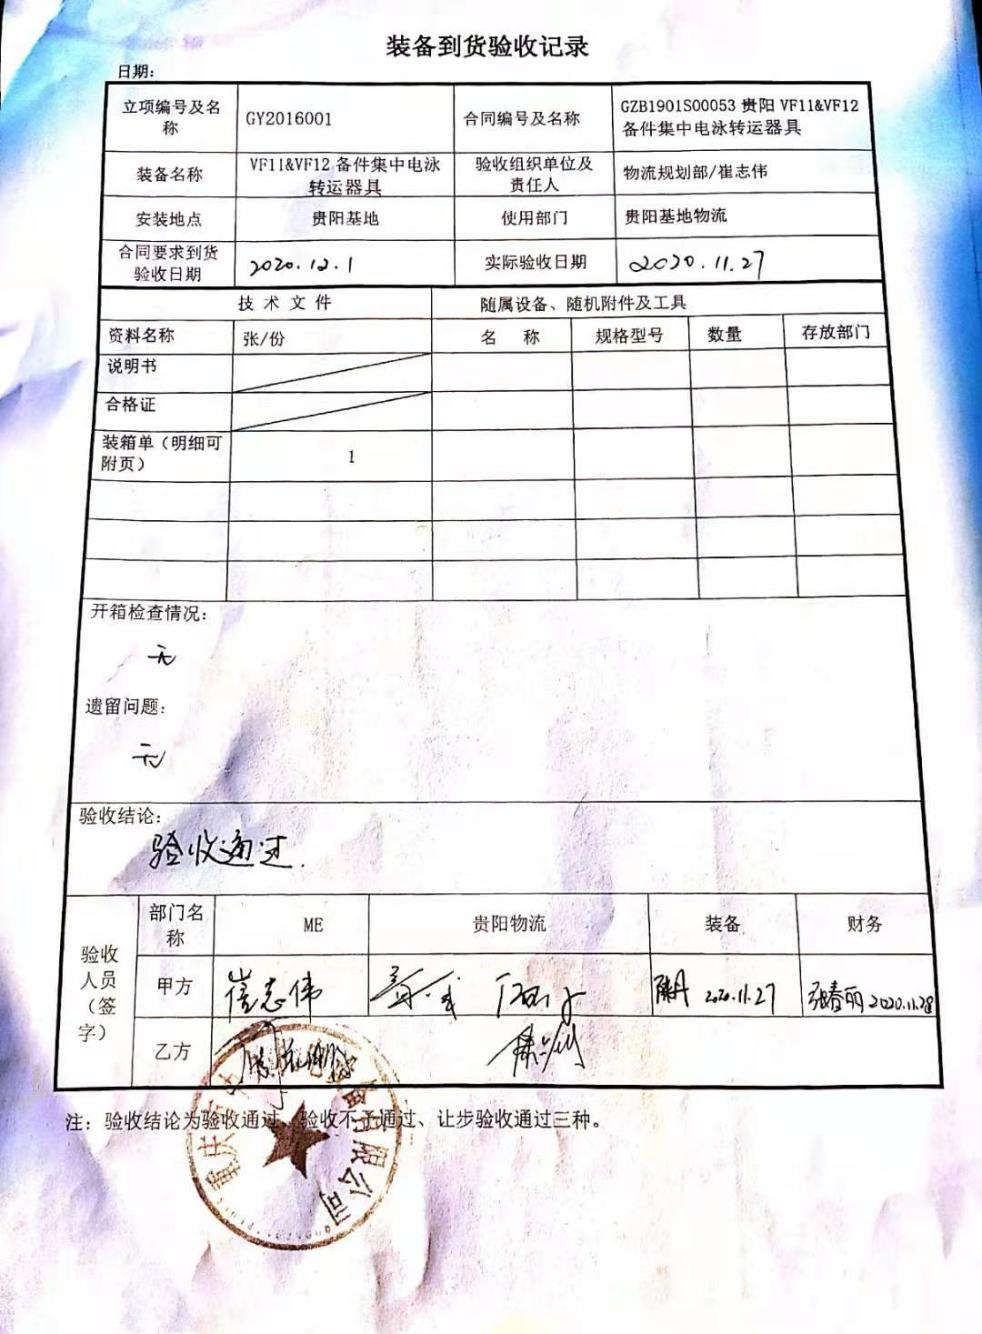 装备到货验收记录
日期：
立项编号及名称 GY2016001 合同编号及名称 GZB1901S00053 贵阳 VF11&VF12 备件集中电泳转运器具
装备名称 VF11&VF12 备件集中电泳转运器具 验收组织单位及责任人 物流规划部/崔志伟
安装地点 贵阳基地 使用部门 贵阳基地物流
合同要求到货验收日期 2020.12.1 实际验收日期 2020.11.27
技术文件 随属设备、随机附件及工具
资料名称 张/份 名 称 规格型号 数量 存放部门
说明书
合格证
装箱单（明细可附页） 1
开箱检查情况：
无
遗留问题：
无
验收结论：
验收通过.
验收人员（签字） 部门名称 ME 贵阳物流 装备 财务
甲方 崔志伟 2020.11.27 张春丽 2020.11.28
乙方
注：验收结论为验收通过、验收不予通过、让步验收通过三种。
重庆 有限公司